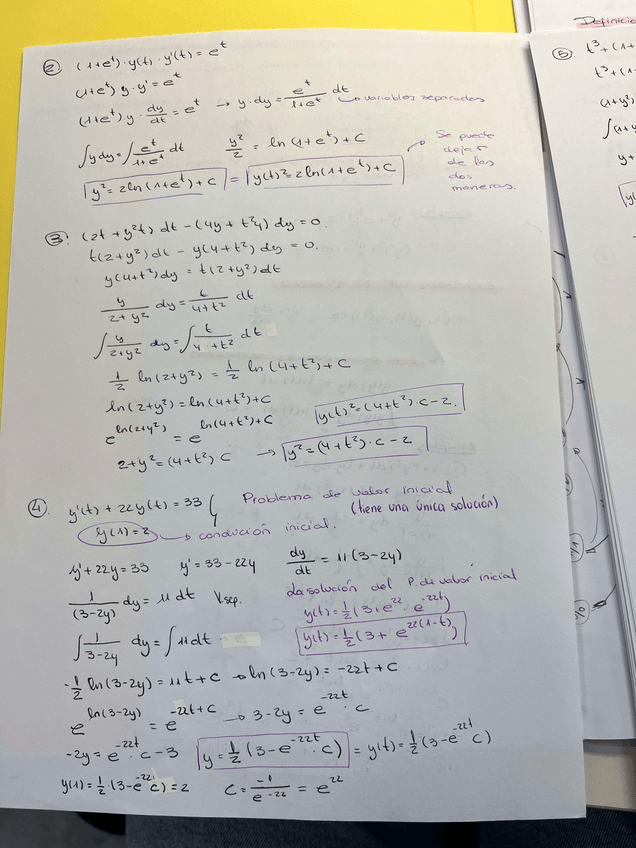 Definicio
② (1+e^t)·y(t)·y'(t) = e^t
(1+e^t) y·y' = e^t
(1+e^t) y · dy/dt = e^t → y·dy = e^t/(1+e^t) dt ↳ variables separadas
∫y dy = ∫ e^t/(1+e^t) dt    y²/2 = ln(1+e^t)+C
y² = 2ln(1+e^t)+C = y(t)² = 2ln(1+e^t)+C → Se puede dejar de las dos maneras.
③ (2t+y²t) dt - (4y+t²y) dy = 0.
t(2+y²) dt - y(4+t²) dy = 0.
y(4+t²)dy = t(2+y²)dt
y/(2+y²) dy = t/(4+t²) dt
∫ y/(2+y²) dy = ∫ t/(4+t²) dt
1/2 ln(2+y²) = 1/2 ln(4+t²)+C
ln(2+y²) = ln(4+t²)+C    y(t)² = (4+t²)·C-2.
e^ln(2+y²) = e^ln(4+t²)+C
2+y² = (4+t²)C → y² = (4+t²)·C-2
④ y'(t)+22y(t) = 33    Problema de valor inicial
y(1)=2 → condición inicial.    (tiene una única solución)
y'+22y=33    y'=33-22y    dy/dt = 11(3-2y)
1/(3-2y) dy = 11 dt    V.sep.    La solución del P. de valor inicial
y(t) = 1/2(3+e^22·e^-22t)
∫ 1/(3-2y) dy = ∫11dt    y(t) = 1/2(3+e^22(1-t))
-1/2 ln(3-2y) = 11t+C → ln(3-2y) = -22t+C
e^ln(3-2y) = e^-22t+C → 3-2y = e^-22t·C
-2y = e^-22t·C-3    y = 1/2(3-e^-22t·C) = y(t) = 1/2(3-e^-22t C)
y(1) = 1/2·(3-e^-22 C) = 2    C = -1/e^-22 = e^22
⑤ t³+(1+
t³+(1-
(1+y²)
∫(1+y
y+